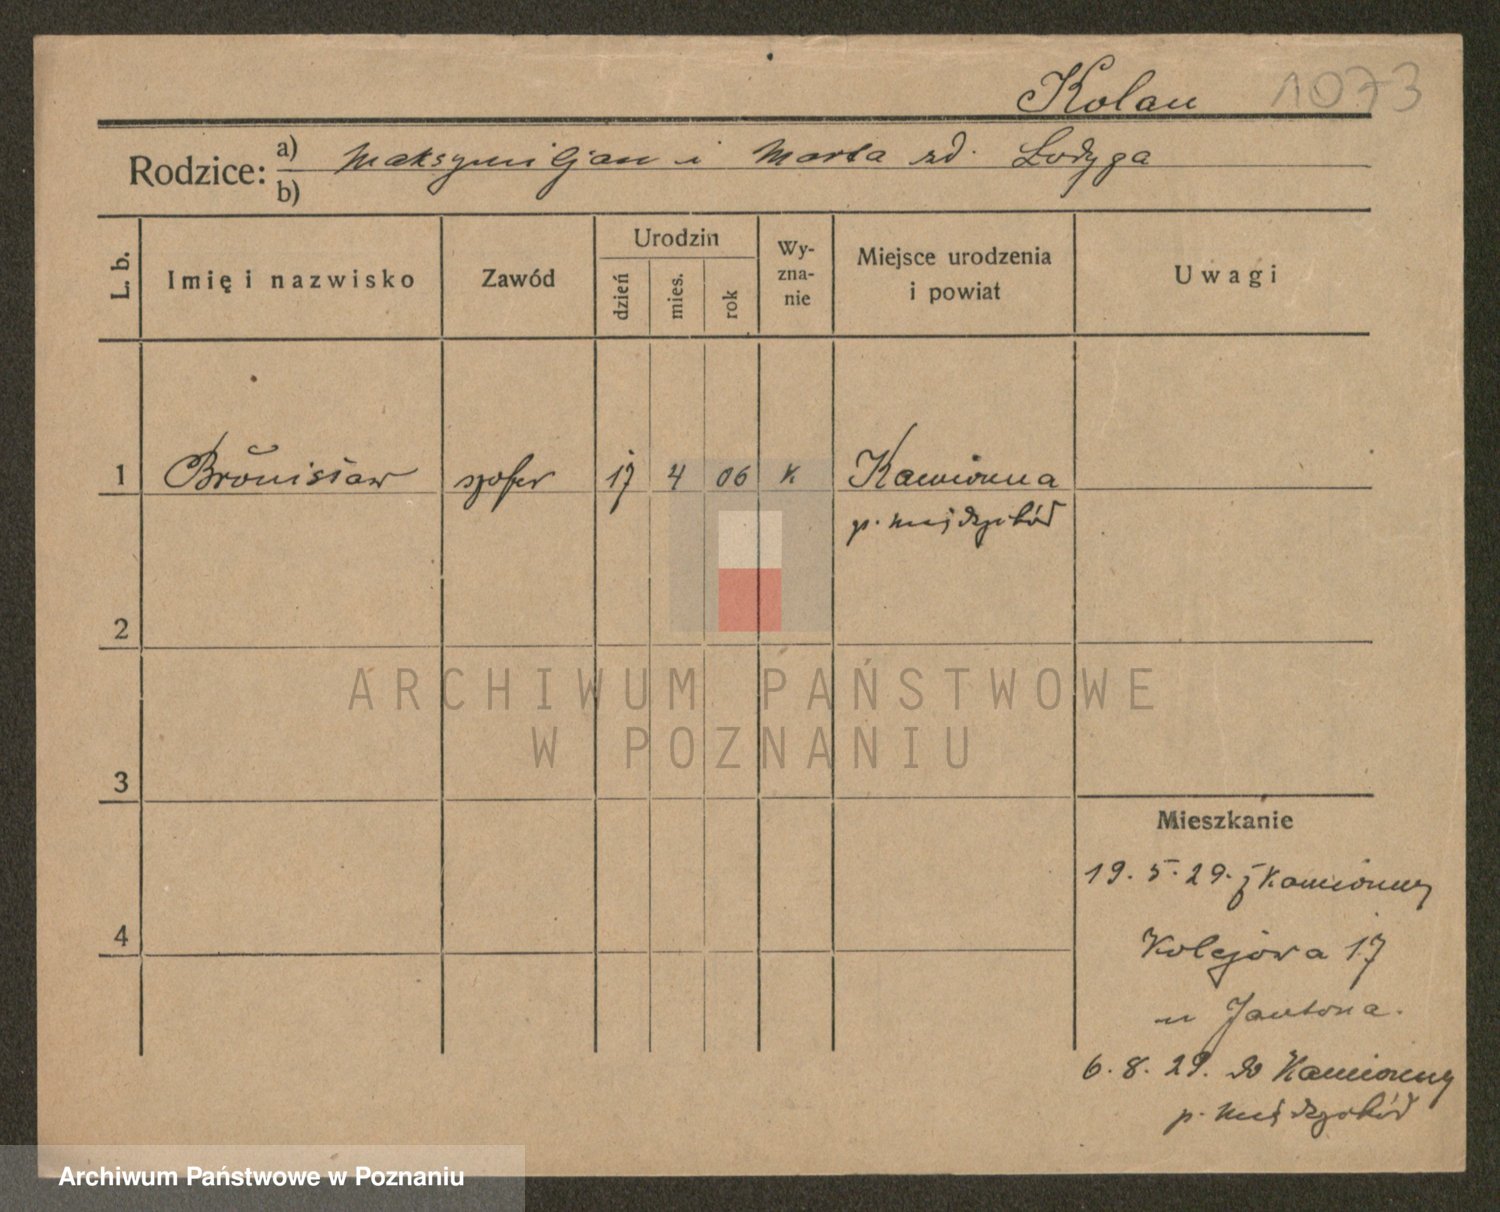 Kolan 1073
Rodzice: a) Maksymiljan i Marta zd. Łodyga
b)
L. b. Imię i nazwisko Zawód Urodzin dzień mies. rok Wyznanie Miejsce urodzenia i powiat Uwagi
1 Bronisław szofer 17 4 06 k Kamionna
p. Międzychód
2
3
4
Mieszkanie
19. 5. 29. z Kamionny
Kolejowa 17
u Jantona.
6. 8. 29. do Kamionny
p. Międzychód
ARCHIWUM PAŃSTWOWE
W POZNANIU
Archiwum Państwowe w Poznaniu